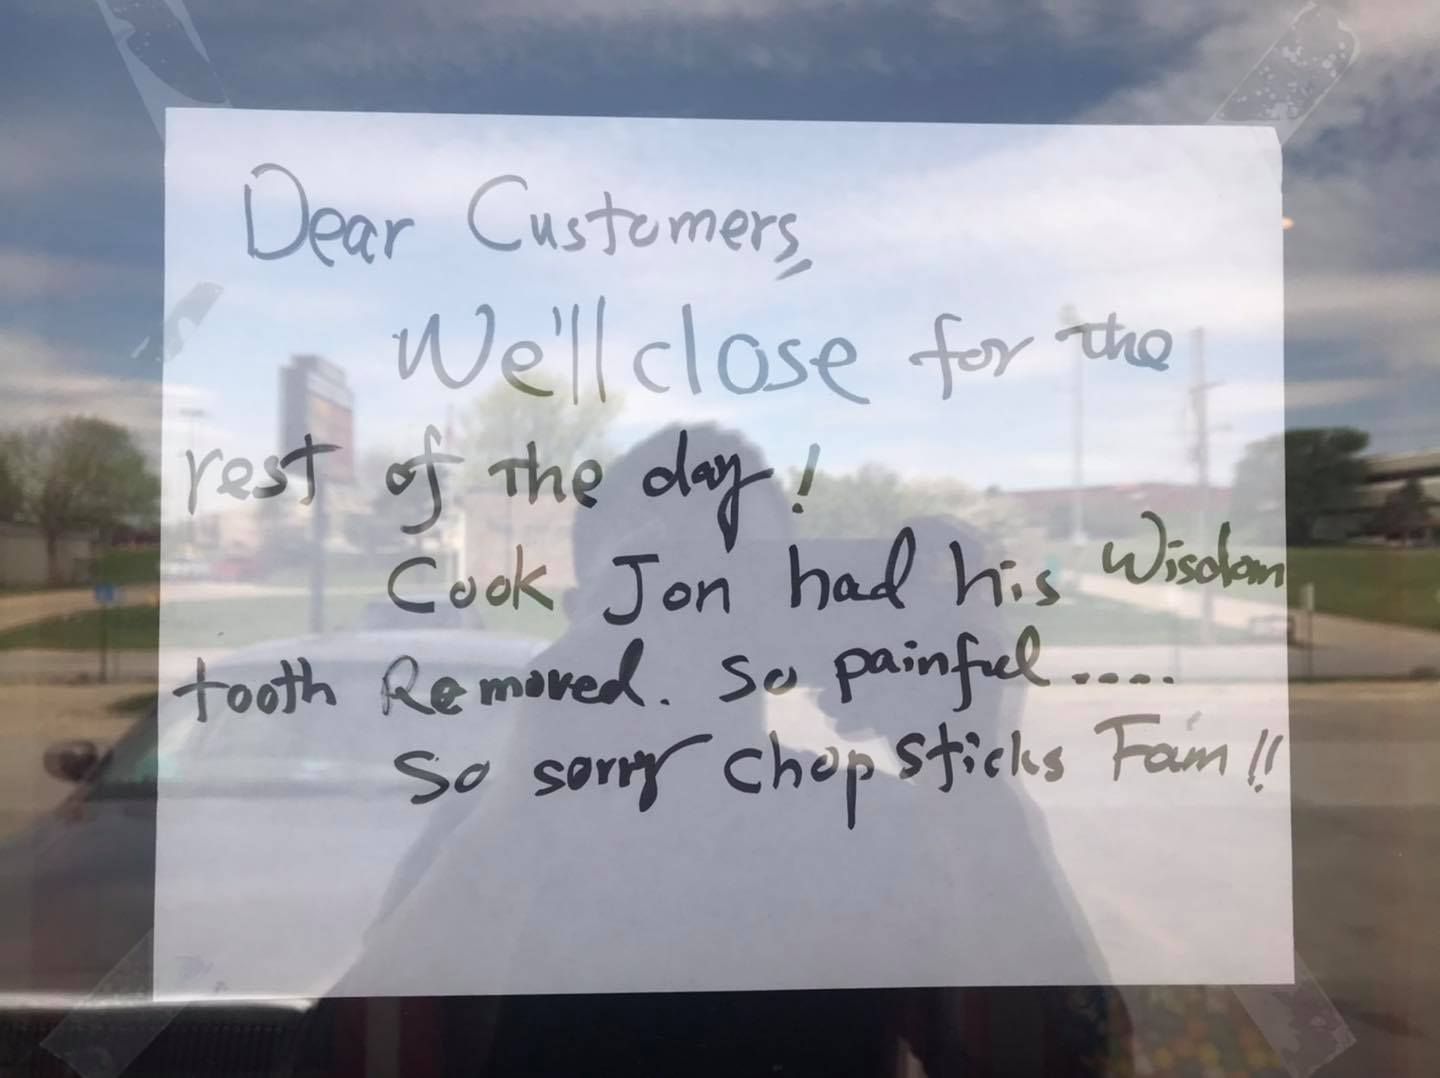 Dear Customers,
We'll close for the
rest of the day!
Cook Jon had his Wisdom
tooth Removed. So painful.....
So sorry Chopsticks Fam!!